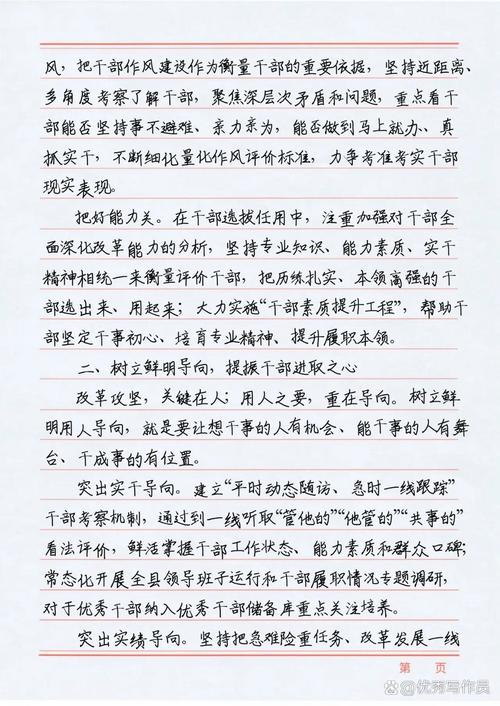 风，把干部作风建设作为衡量干部的重要依据，坚持近距离、
多角度考察了解干部，聚焦深层次矛盾和问题，重点看干
部能否坚持事不避难、亲力亲为，能否做到马上就办、真
抓实干，不断细化量化作风评价标准，力争考准考实干部
现实表现。
把好能力关。在干部选拔任用中，注重加强对干部全
面深化改革能力的分析，坚持专业知识、能力素质、实干
精神相统一来衡量评价干部，把历练扎实、本领高强的干
部选出来、用起来；大力实施“干部素质提升工程”，帮助干
部坚定干事初心、培育专业精神、提升履职本领。
二、树立鲜明导向，提振干部进取之心
改革攻坚，关键在人；用人之要，重在导向。树立鲜
明用人导向，就是要让想干事的人有机会、能干事的人有舞
台、干成事的有位置。
突出实干导向。建立“平时动态随访、急时一线跟踪”
干部考察机制，通过到一线听取“管他的”“他管的”“共事的”
看法评价，鲜活掌握干部工作状态、能力素质和群众口碑；
常态化开展全县领导班子运行和干部履职情况专题调研，
对于优秀干部纳入优秀干部储备库重点关注培养。
突出实绩导向。坚持把急难险重任务、改革发展一线
第 页
优秀写作员